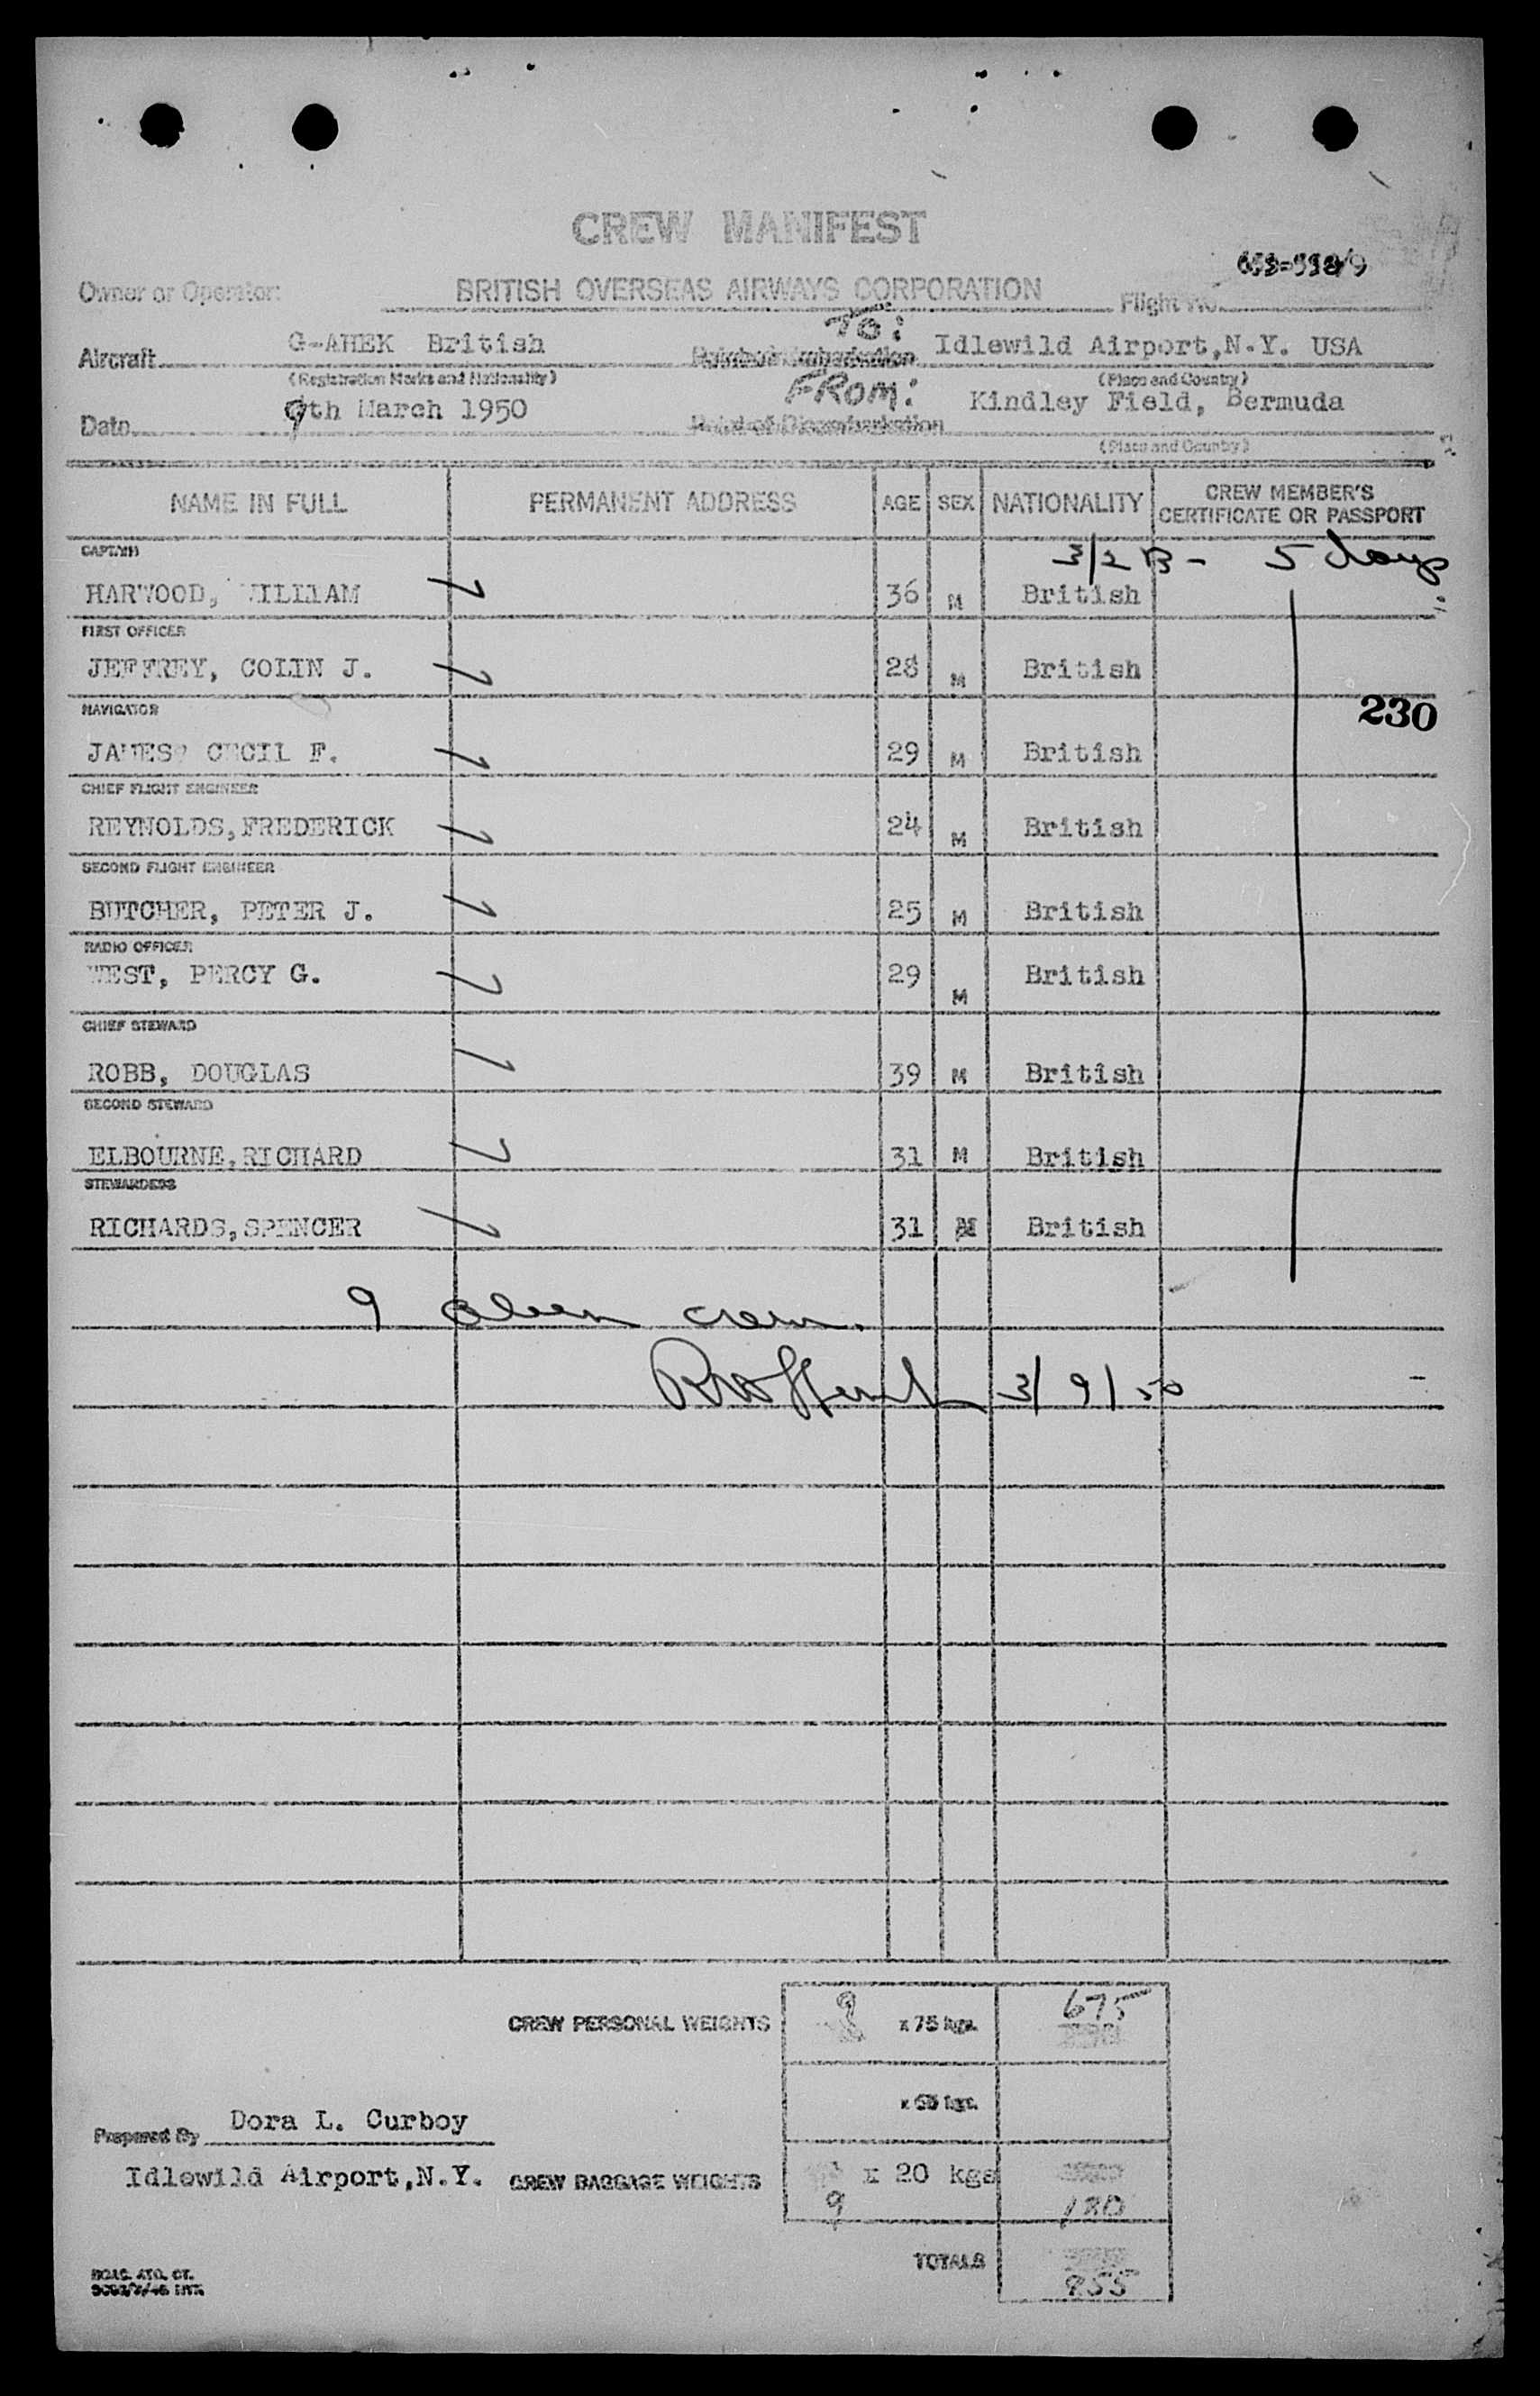 CREW MANIFEST
Owner or Operator: BRITISH OVERSEAS AIRWAYS CORPORATION Flight No.
TO:
Aircraft G-AHEK British Idlewild Airport,N.Y. USA
(Registration Marks and Nationality) (Place and Country)
FROM:
Date 9th March 1950 Point of Disembarkation Kindley Field, Bermuda
(Place and Country)
NAME IN FULL PERMANENT ADDRESS AGE SEX NATIONALITY CREW MEMBER'S CERTIFICATE OR PASSPORT
CAPTAIN 3/2 B - 5 days
HARWOOD, WILLIAM 36 M British
FIRST OFFICER
JEFFREY, COLIN J. 28 M British
NAVIGATOR 230
JAMES, CECIL F. 29 M British
CHIEF FLIGHT ENGINEER
REYNOLDS,FREDERICK 24 M British
SECOND FLIGHT ENGINEER
BUTCHER, PETER J. 25 M British
RADIO OFFICER
WEST, PERCY G. 29 M British
CHIEF STEWARD
ROBB, DOUGLAS 39 M British
SECOND STEWARD
ELBOURNE,RICHARD 31 M British
STEWARDESS
RICHARDS,SPENCER 31 M British
9 alien crew.
3/9/50
CREW PERSONAL WEIGHTS 9 x 75 kgs. 675
x 65 kgs.
Prepared By Dora L. Curboy
Idlewild Airport,N.Y. CREW BAGGAGE WEIGHTS 9 x 20 kgs 180
TOTALS 855